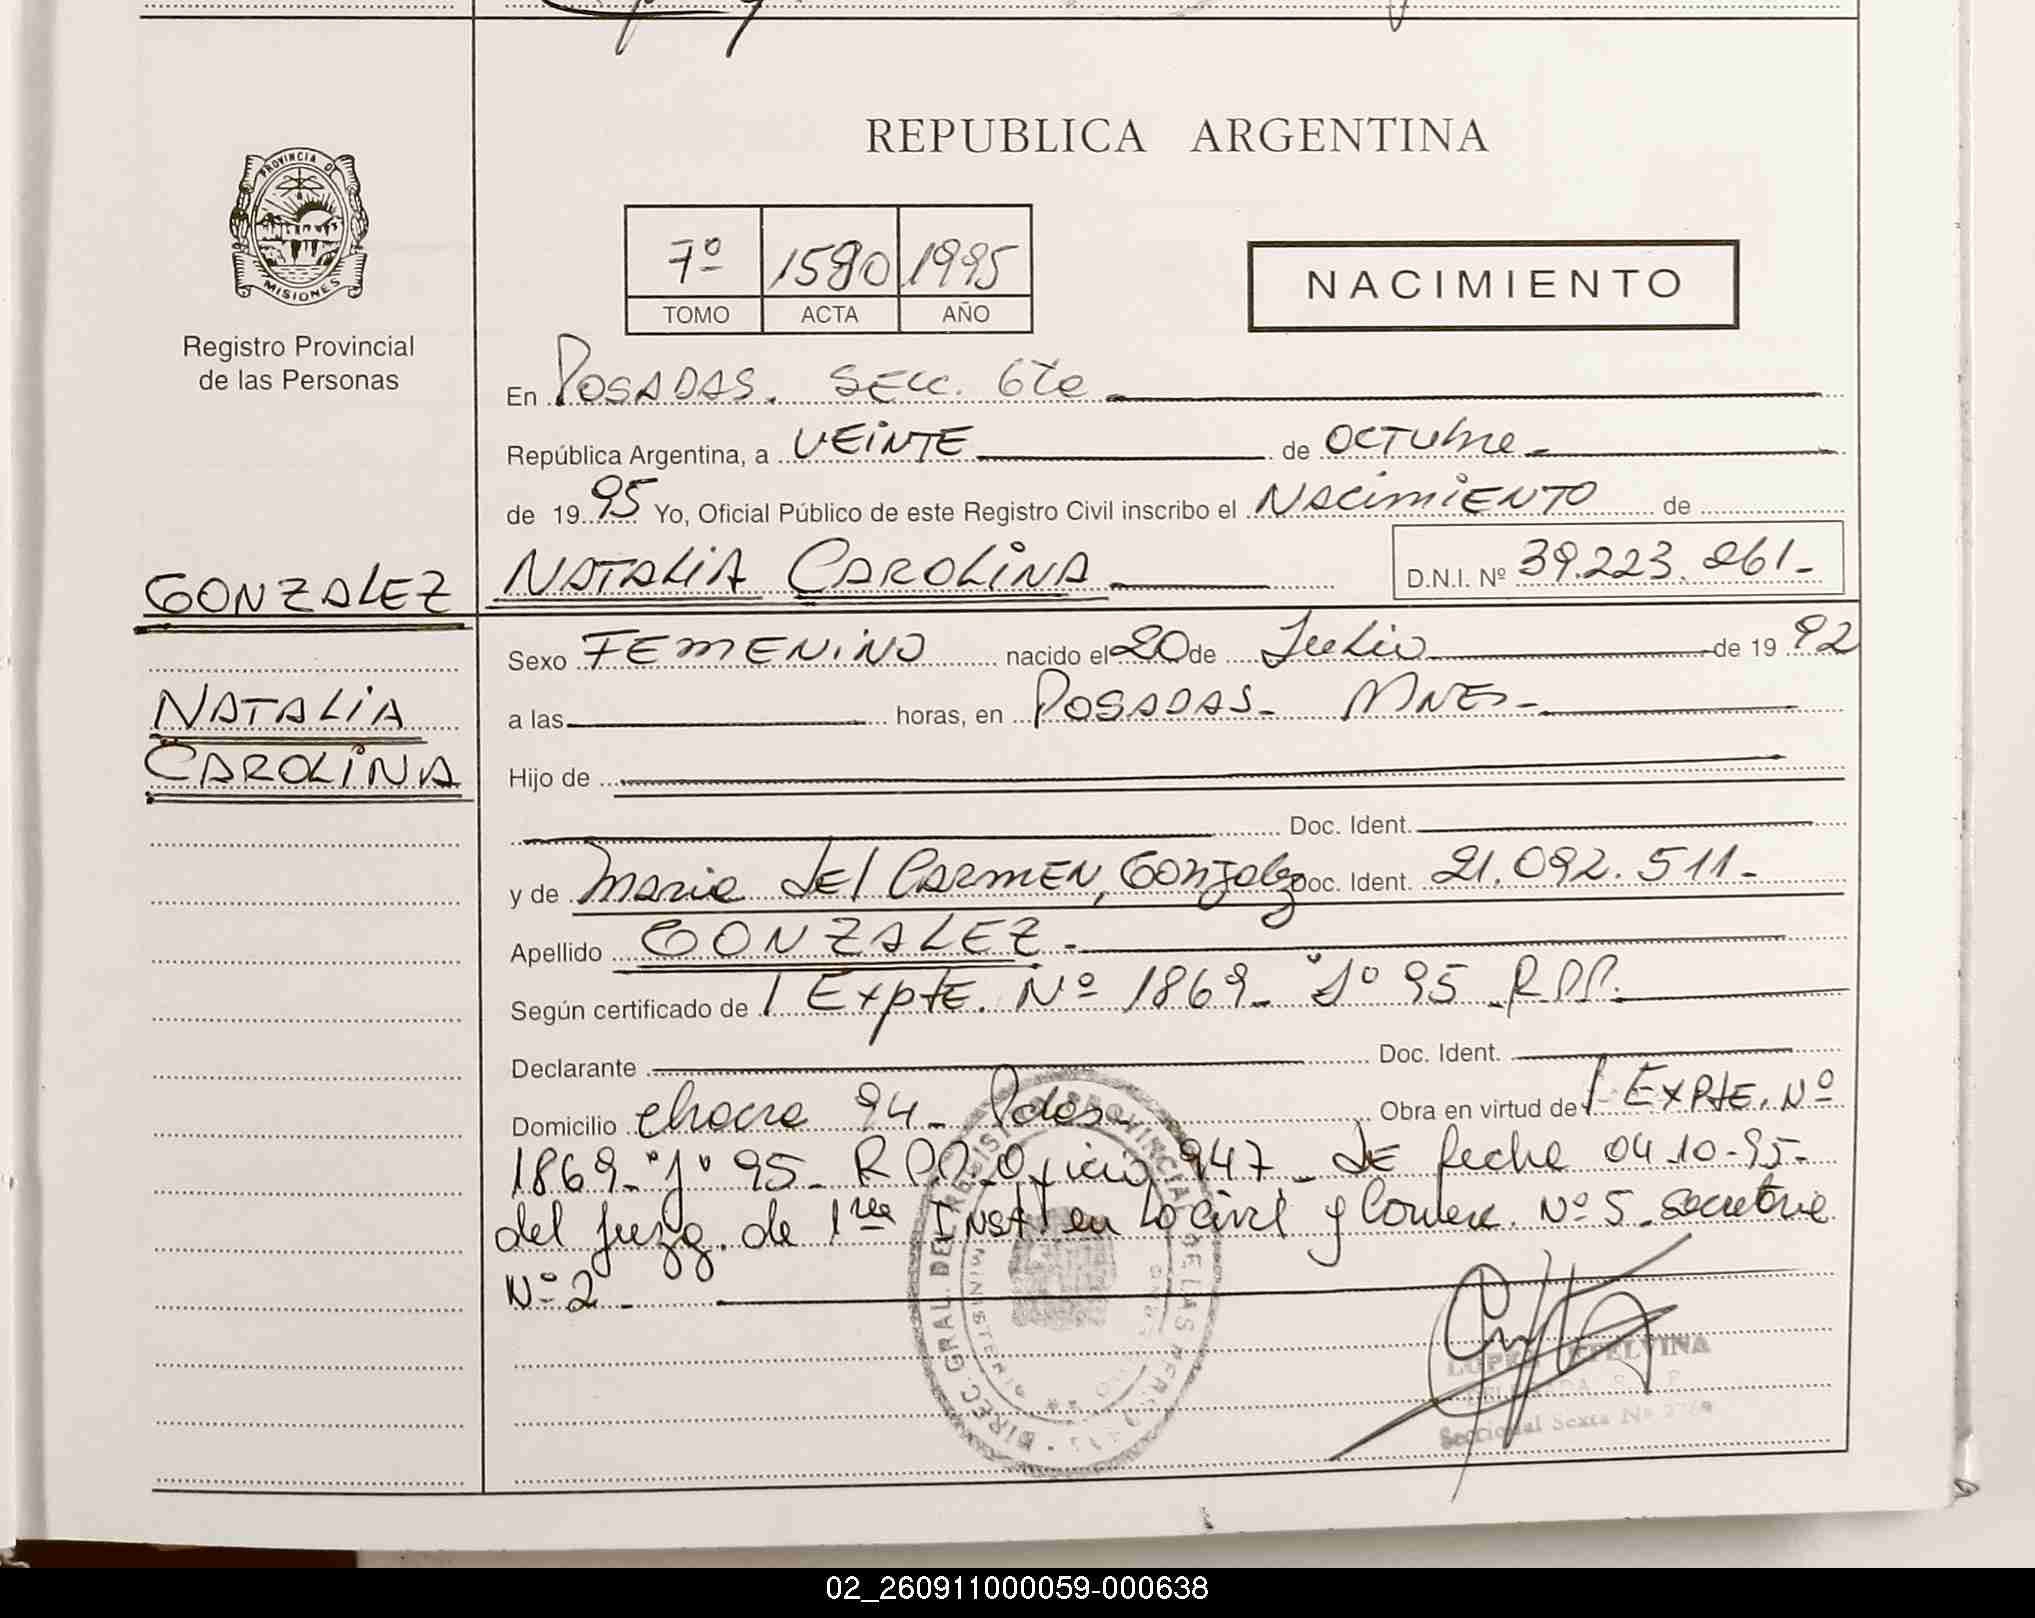 REPUBLICA ARGENTINA
PROVINCIA DE
MISIONES
7º 1590 1995
TOMO ACTA AÑO
NACIMIENTO
Registro Provincial
de las Personas
En POSADAS. SECC. 6ta
República Argentina, a VEINTE de OCTUbre
de 1995 Yo, Oficial Público de este Registro Civil inscribo el NACIMIENTO de
GONZALEZ NATALIA CAROLINA D.N.I. Nº 39.223.261-
Sexo FEMENINO nacido el 20 de Julio de 1992
NATALIA
a las horas, en POSADAS- MNES-
CAROLINA
Hijo de
Doc. Ident.
y de Maria del CARMEN, Gonzalez Doc. Ident. 21.092.511-
Apellido GONZALEZ-
Según certificado de / Expte. Nº 1869- "J" 95 - R.P.P.
Declarante Doc. Ident.
Domicilio chacra 94- Pdas- Obra en virtud de / EXPTE. Nº
1869- "J" 95- R.P.P. Oficio 947- de fecha 04-10-95-
del juzg. de 1ra INST. en lo Civil y Comerc. Nº 5- secretaria
Nº 2-
DIREC. GRAL. DEL REGISTRO PROVINCIAL DE LAS PERSONAS
LOPEZ ETELVINA
Seccional Sexta Nº
02_260911000059-000638